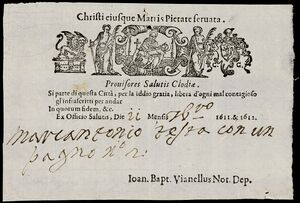 Christi eiusque Matris Pietate seruata.
Prouisores Salutis Clodiæ.
Si parte di questa Città, per la Iddio gratia, libera d'ogni mal contagioso
gl'infrascritti per andar
In quorum fidem, &c.
Ex Officio Salutis, Die ii Mensis 1611. & 1612.
Marcantonio Testa con un
pagno nº 2
Ioan. Bapt. Vianellus Not. Dep.